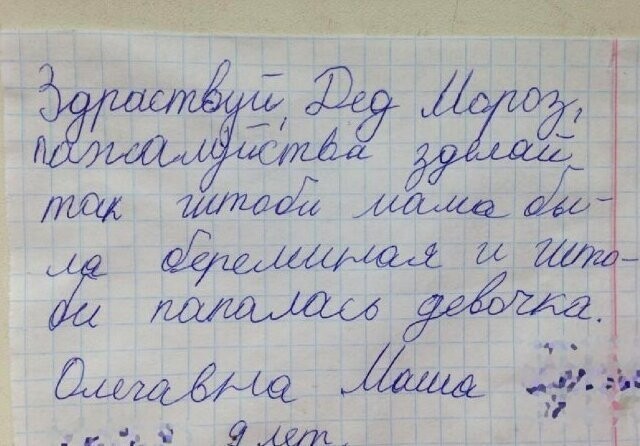 Здраствуй, Дед Мороз,
пажалуйства зделай
так штоби мама бы-
ла беременая и што-
би папалась девочка.
Олегавна Маша
9 лет.